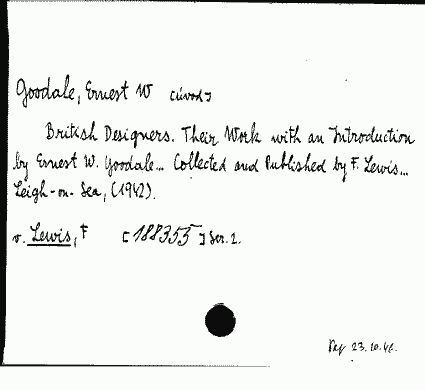 Goodale, Ernest W [úvod]
British Designers. Their Work with an Introduction
by Ernest W. Goodale... Collected and Published by F. Lewis...
Leigh-on-Sea, (1942).
v. Lewis, F [188355] Ser. 2.
23.10.46.